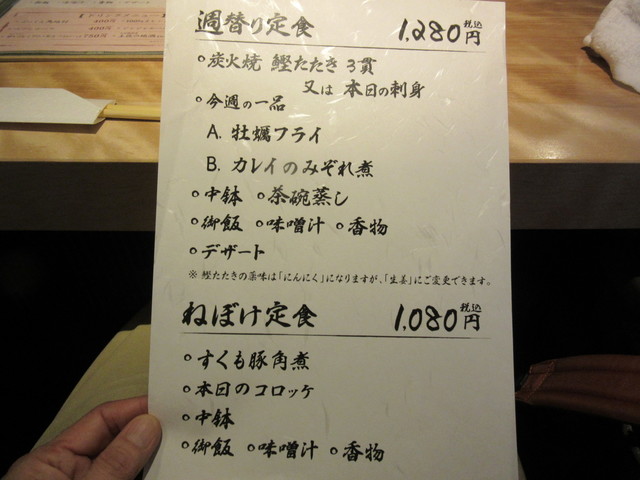 週替り定食 1,280円 税込
○炭火焼 鰹たたき 3貫
又は 本日の刺身
○今週の一品
A. 牡蠣フライ
B. カレイのみぞれ煮
○中鉢 ○茶碗蒸し
○御飯 ○味噌汁 ○香物
○デザート
※ 鰹たたきの薬味は「にんにく」になりますが、「生姜」にご変更できます。
ねぼけ定食 1,080円 税込
○すくも豚角煮
○本日のコロッケ
○中鉢
○御飯 ○味噌汁 ○香物